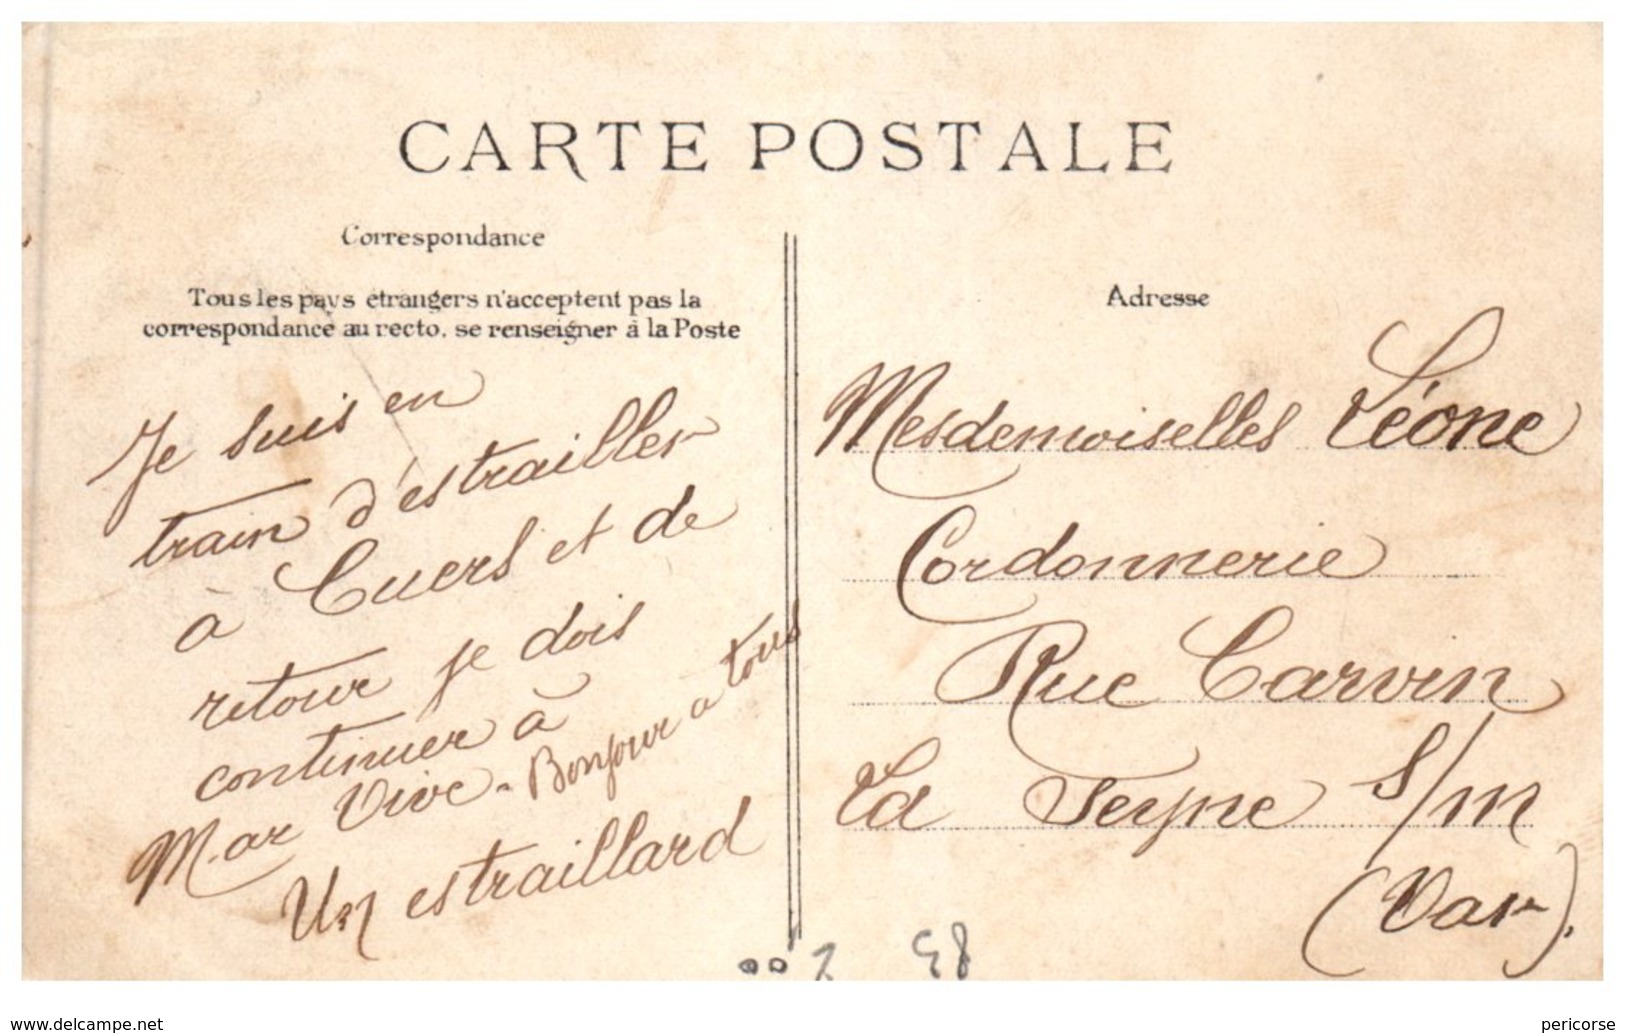 CARTE POSTALE
Correspondance
Tous les pays étrangers n'acceptent pas la
correspondance au recto. se renseigner à la Poste
Je suis en
train d'estrailler
à Cuers et de
retour je dois
continuer à
Mar Vive - Bonjour a tous
Un estraillard
Adresse
Mesdemoiselles Léone
Cordonnerie
Rue Carvin
La Seyne s/m
(Var).
www.delcampe.net
pericorse